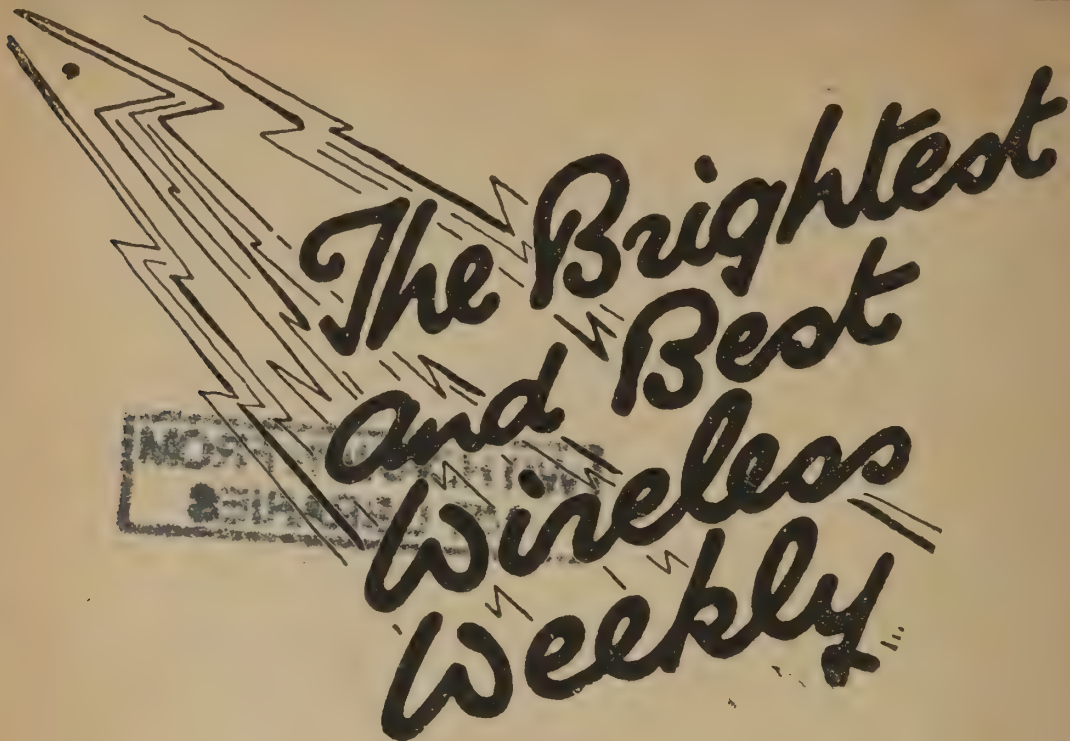 The Brightest
and Best
Wireless
Weekly